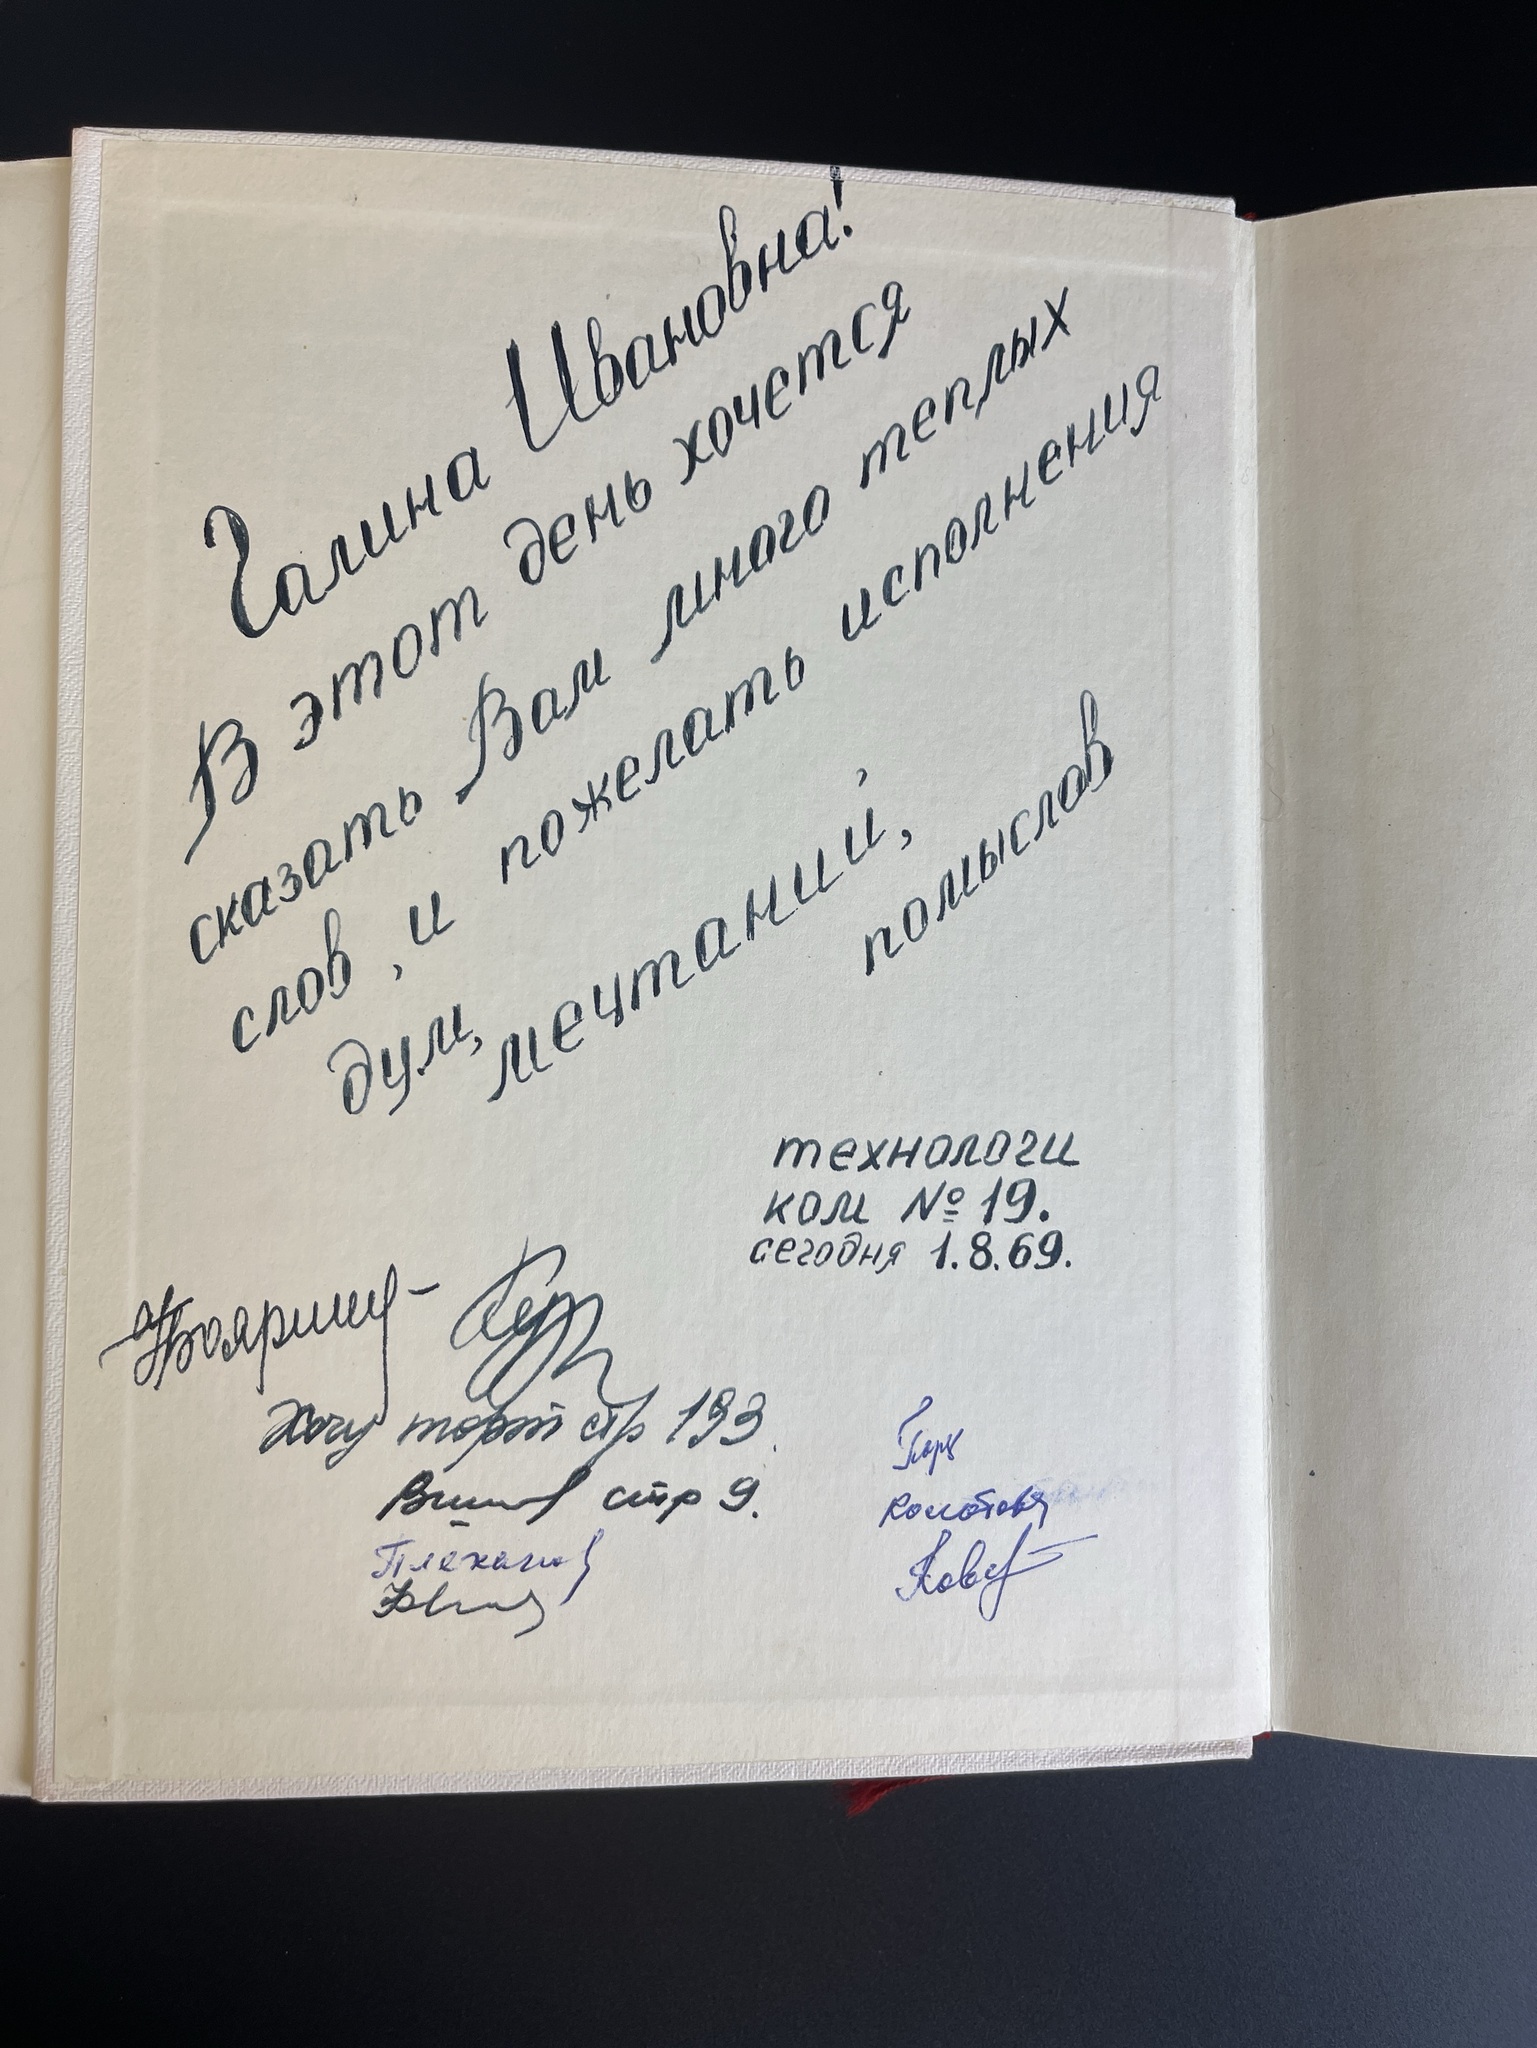 Галина Ивановна!
В этот день хочется
сказать Вам много теплых
слов, и пожелать исполнения
дум, мечтаний,
помыслов
технологи
ком № 19.
сегодня 1.8.69.
Хочу торт стр 193.
стр 9.
Плеханов